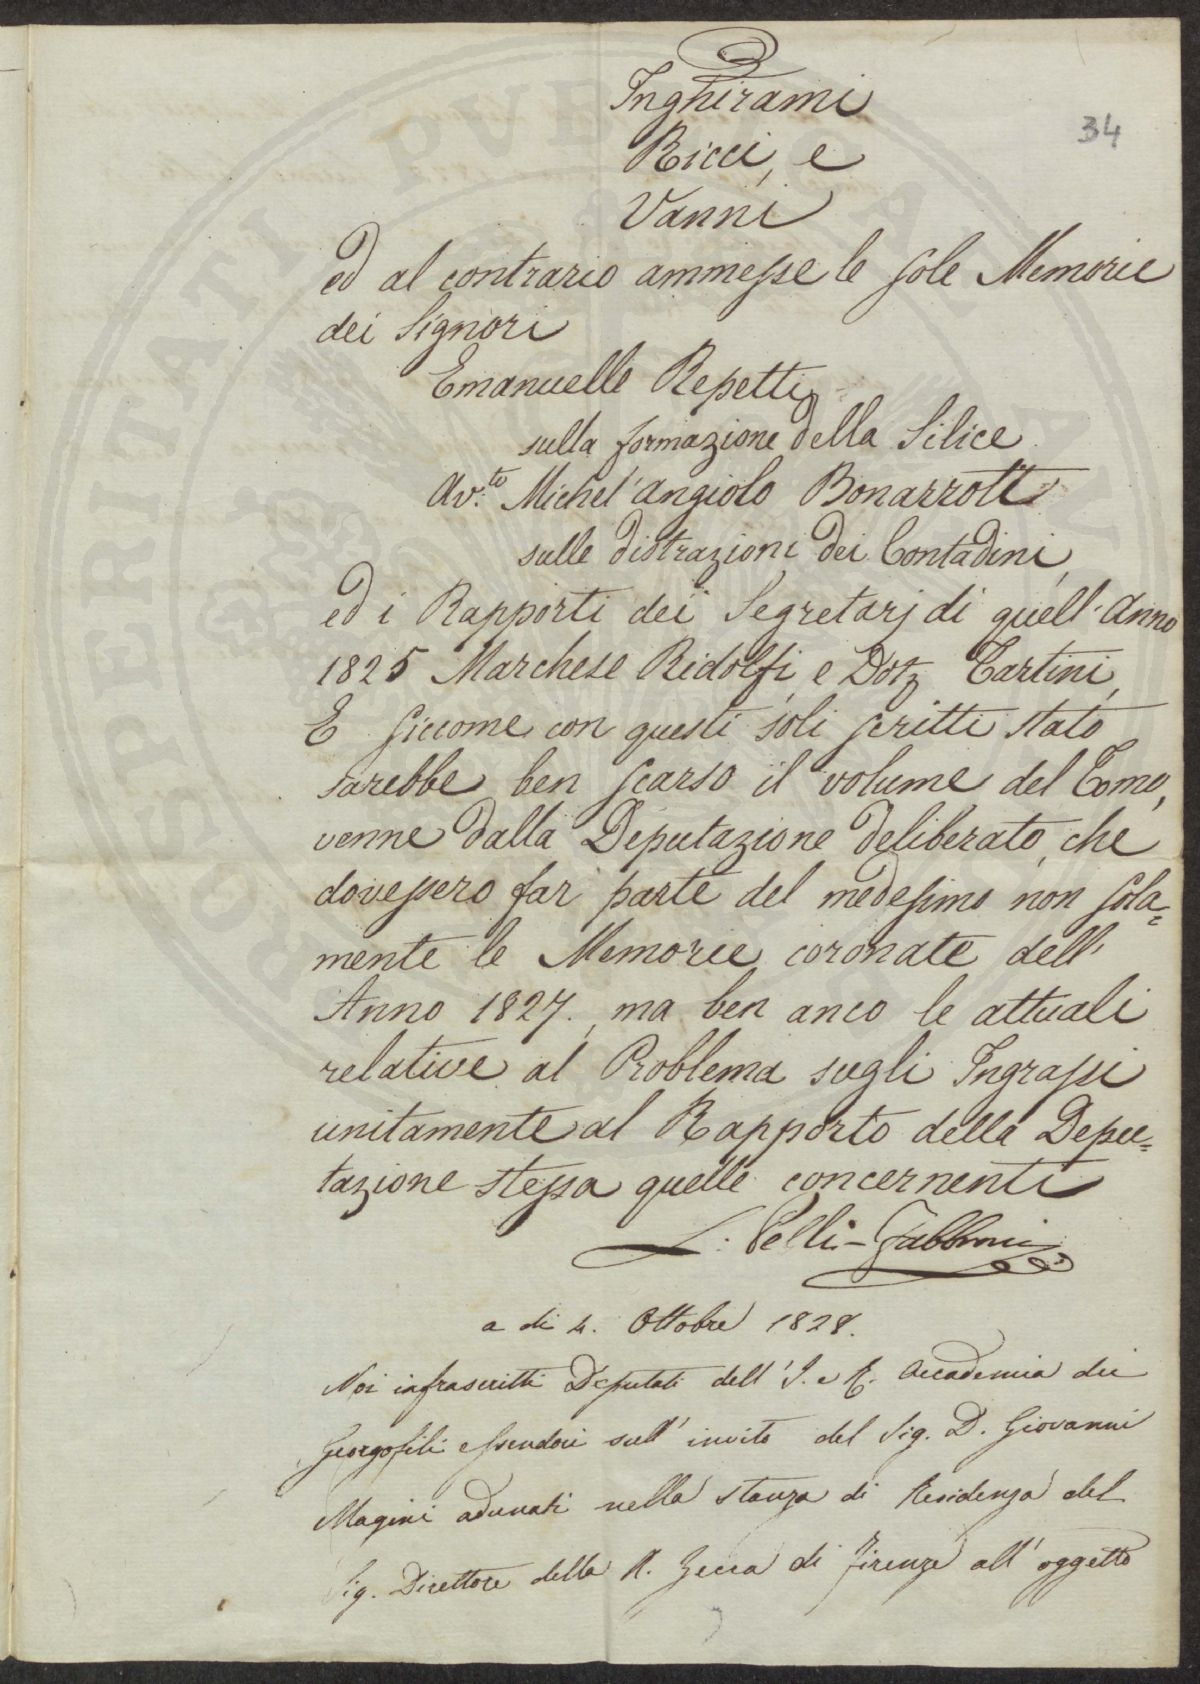 34
Inghirami
Ricci, e
Vanni
ed al contrario ammesse le sole Memorie
dei Signori
Emanuelle Repetti
sulla formazione della Silice
Av.to Michel'angiolo Bonarroti
sulle distrazioni dei Contadini,
ed i Rapporti dei Segretarj di quell'Anno
1825 Marchese Ridolfi, e Dott Tartini,
E siccome con questi soli scritti stato
sarebbe ben scarso il volume del Tomo,
venne dalla Deputazione deliberato, che
dovessero far parte del medesimo non sola=
mente le Memorie coronate dell'
Anno 1827., ma ben anco le attuali
relative al Problema sugli Ingrassi
unitamente al Rapporto della Depu=
tazione stessa quelle concernenti
L: Pelli-Fabbroni
a di 4. Ottobre 1828.
Noi infrascritti Deputati dell'I. e R. Accademia dei
Georgofili essendoci sull'invito del Sig. D. Giovanni
Magini adunati nella stanza di Residenza del
Sig. Direttore della R. Zecca di Firenze all'oggetto
PROSPERITATI PUBLICAE AUGENDAE